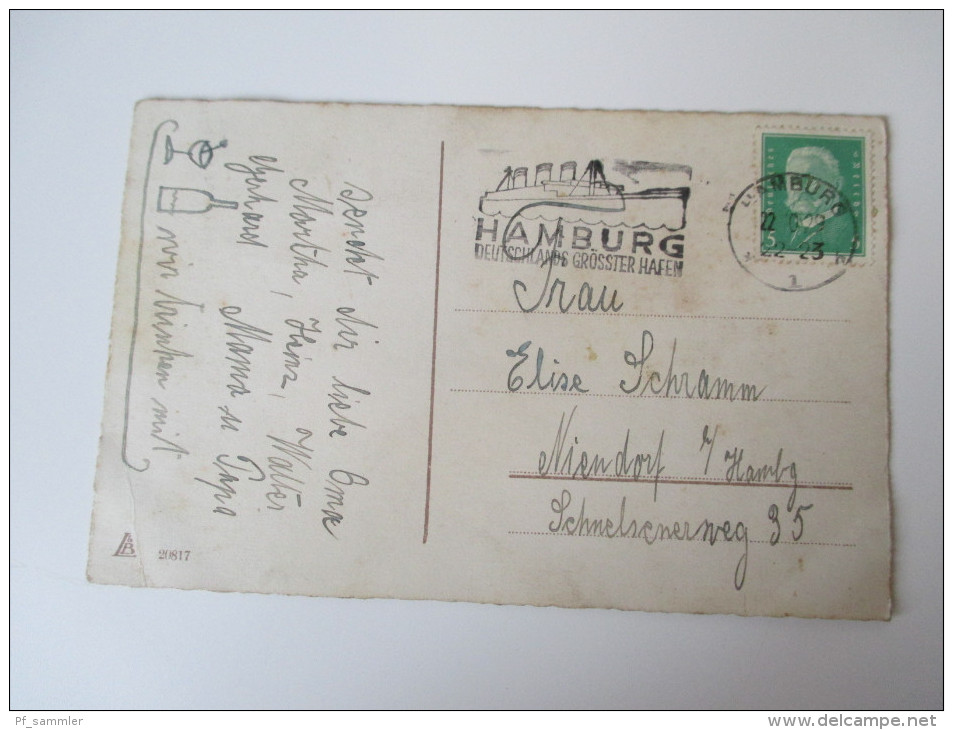 sendet dir liebe Oma
Martha, Heinz, Walter
Gerhard Mama u Papa
wir trinken mit
HAMBURG
DEUTSCHLANDS GRÖSSTER HAFEN
HAMBURG
22
22-23
1
5
Frau
Elise Schramm
Niendorf b/Hambg
Schnelsenerweg 35
20817
Pf_sammler
www.delcampe.net